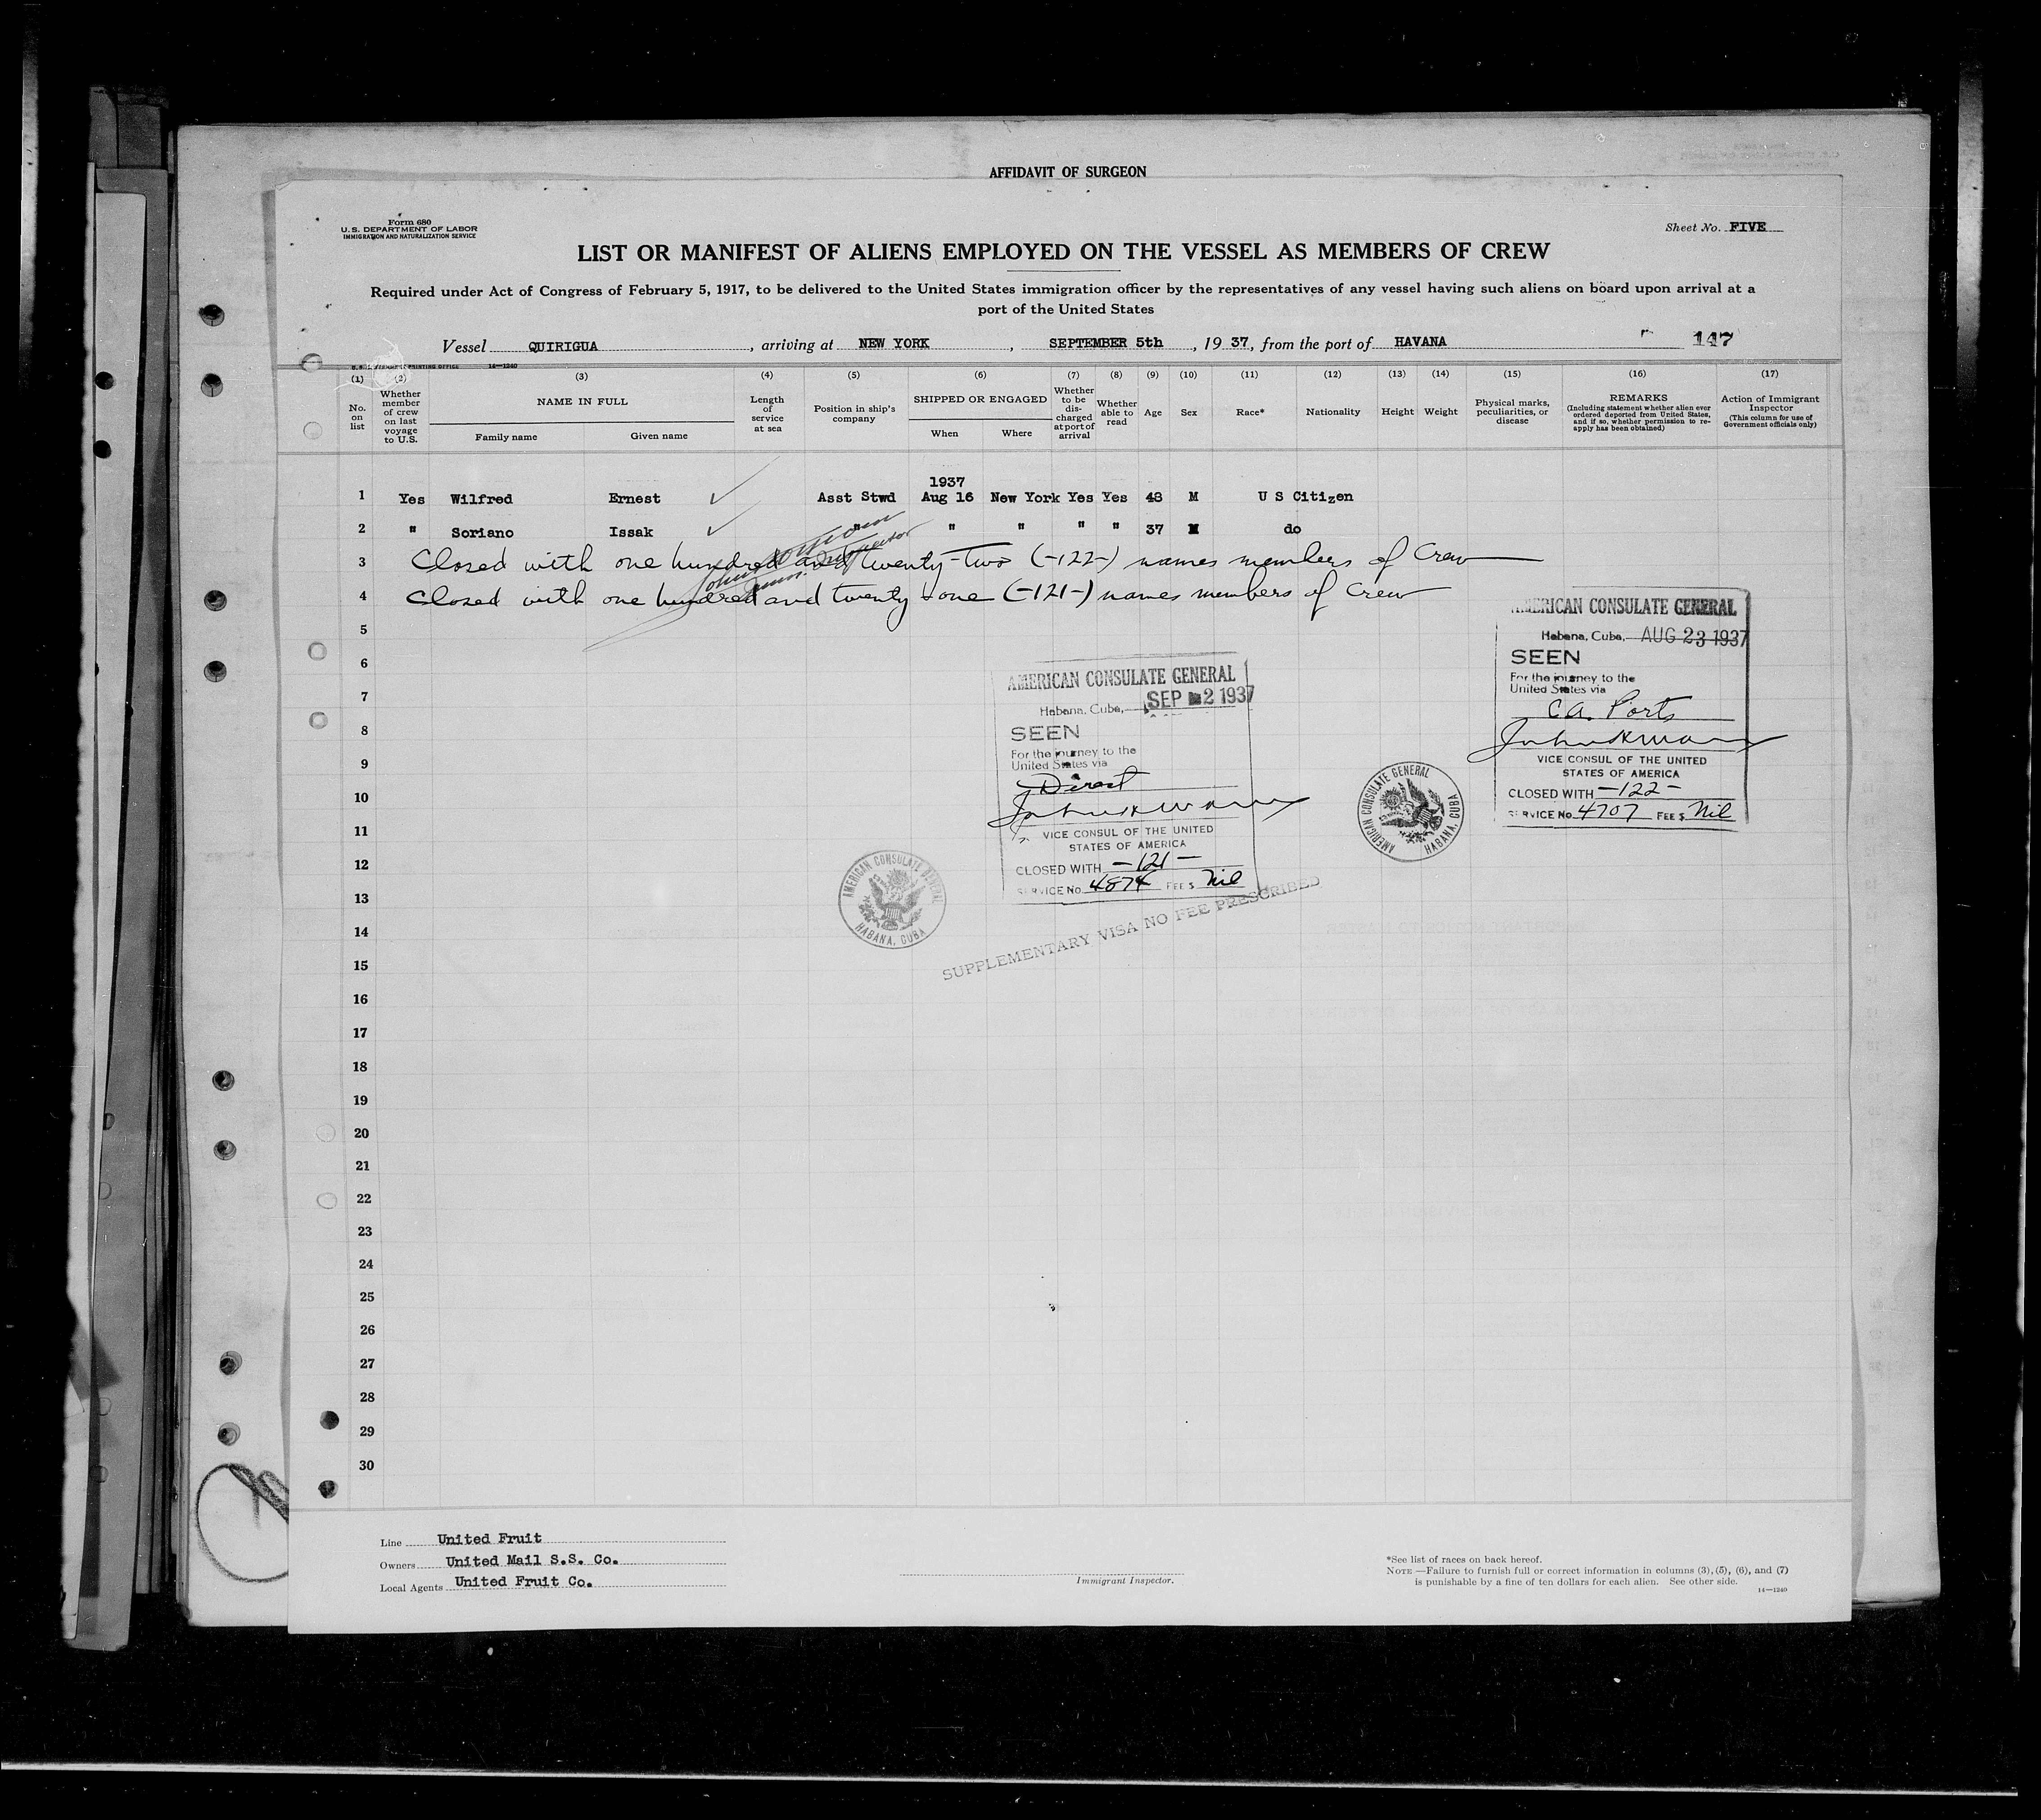 AFFIDAVIT OF SURGEON
Form 680
U. S. DEPARTMENT OF LABOR
IMMIGRATION AND NATURALIZATION SERVICE
Sheet No. FIVE
LIST OR MANIFEST OF ALIENS EMPLOYED ON THE VESSEL AS MEMBERS OF CREW
Required under Act of Congress of February 5, 1917, to be delivered to the United States immigration officer by the representatives of any vessel having such aliens on board upon arrival at a
port of the United States
Vessel QUIRIGUA, arriving at NEW YORK, SEPTEMBER 5th, 19 37, from the port of HAVANA 147
PRINTING OFFICE 14—1240
(1) (2) (3) (4) (5) (6) (7) (8) (9) (10) (11) (12) (13) (14) (15) (16) (17)
No. on list
Whether member of crew on last voyage to U.S.
NAME IN FULL
Family name Given name
Length of service at sea
Position in ship's company
SHIPPED OR ENGAGED
When Where
Whether to be discharged at port of arrival
Whether able to read
Age
Sex
Race*
Nationality
Height
Weight
Physical marks, peculiarities, or disease
REMARKS
(Including statement whether alien ever ordered deported from United States, and if so, whether permission to re-apply has been obtained)
Action of Immigrant Inspector
(This column for use of Government officials only)
1937
1 Yes Wilfred Ernest ✓ Asst Stwd Aug 16 New York Yes Yes 48 M U S Citizen
2 " Soriano Issak ✓ " " " " " 37 M do
3 Closed with one hundred and twenty-two (-122-) names members of Crew
4 Closed with one hundred and twenty-one (-121-) names members of Crew
Inspector
5
6
7
8
9
10
11
12
13
14
15
16
17
18
19
20
21
22
23
24
25
26
27
28
29
30
AMERICAN CONSULATE GENERAL
Habana, Cuba, AUG 23 1937
SEEN
For the journey to the
United States via
C.A. Ports
VICE CONSUL OF THE UNITED
STATES OF AMERICA
CLOSED WITH -122-
SERVICE No. 4707 FEE $ Nil
AMERICAN CONSULATE GENERAL
HABANA, CUBA
AMERICAN CONSULATE GENERAL
Habana, Cuba, SEP 2 1937
SEEN
For the journey to the
United States via
Direct
VICE CONSUL OF THE UNITED
STATES OF AMERICA
CLOSED WITH -121-
SERVICE No. 4874 FEE $ Nil
AMERICAN CONSULATE GENERAL
HABANA, CUBA
SUPPLEMENTARY VISA NO FEE PRESCRIBED
Line United Fruit
Owners United Mail S.S. Co.
Local Agents United Fruit Co.
Immigrant Inspector.
*See list of races on back hereof.
NOTE.—Failure to furnish full or correct information in columns (3), (5), (6), and (7)
is punishable by a fine of ten dollars for each alien. See other side.
14—1240